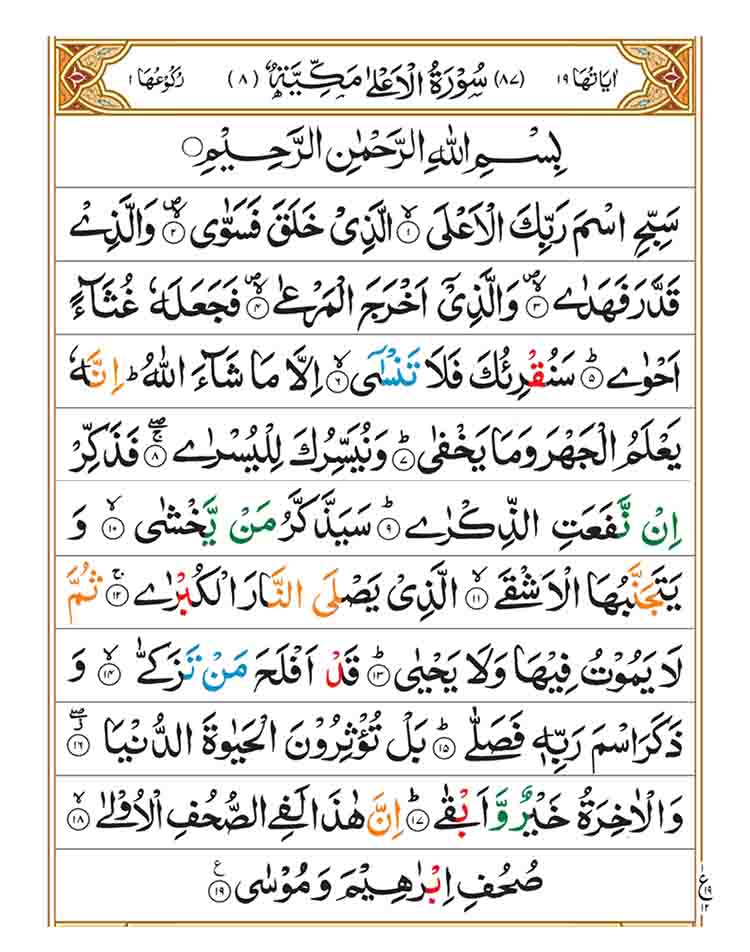 اٰیَاتُهَا ١٩ (٨٧) سُوْرَةُ الْاَعْلٰى مَكِّیَّةٌ (٨) رُكُوْعُهَا ١
بِسْمِ اللّٰهِ الرَّحْمٰنِ الرَّحِیْمِ
سَبِّحِ اسْمَ رَبِّكَ الْاَعْلَى ۙ﴿١﴾ الَّذِیْ خَلَقَ فَسَوّٰى ۪ۙ﴿٢﴾ وَالَّذِیْ
قَدَّرَ فَهَدٰى ۪ۙ﴿٣﴾ وَالَّذِیْۤ اَخْرَجَ الْمَرْعٰى ۪ۙ﴿٤﴾ فَجَعَلَهٗ غُثَآءً
اَحْوٰى ؕ﴿٥﴾ سَنُقْرِئُكَ فَلَا تَنْسٰۤى ۙ﴿٦﴾ اِلَّا مَا شَآءَ اللّٰهُ ؕ اِنَّهٗ
یَعْلَمُ الْجَهْرَ وَمَا یَخْفٰى ؕ﴿٧﴾ وَنُیَسِّرُكَ لِلْیُسْرٰى ۚۖ﴿٨﴾ فَذَكِّرْ
اِنْ نَّفَعَتِ الذِّكْرٰى ؕ﴿٩﴾ سَیَذَّكَّرُ مَنْ یَّخْشٰى ۙ﴿١٠﴾ وَ
یَتَجَنَّبُهَا الْاَشْقَى ۙ﴿١١﴾ الَّذِیْ یَصْلَى النَّارَ الْكُبْرٰى ۚ﴿١٢﴾ ثُمَّ
لَا یَمُوْتُ فِیْهَا وَلَا یَحْیٰى ؕ﴿١٣﴾ قَدْ اَفْلَحَ مَنْ تَزَكّٰى ۙ﴿١٤﴾ وَ
ذَكَرَ اسْمَ رَبِّهٖ فَصَلّٰى ؕ﴿١٥﴾ بَلْ تُؤْثِرُوْنَ الْحَیٰوةَ الدُّنْیَا ۖ﴿١٦﴾
وَالْاٰخِرَةُ خَیْرٌ وَّاَبْقٰى ؕ﴿١٧﴾ اِنَّ هٰذَا لَفِی الصُّحُفِ الْاُوْلٰى ۙ﴿١٨﴾
صُحُفِ اِبْرٰهِیْمَ وَمُوْسٰى ﴿١٩﴾ ع
١
ع ١٩
١٢